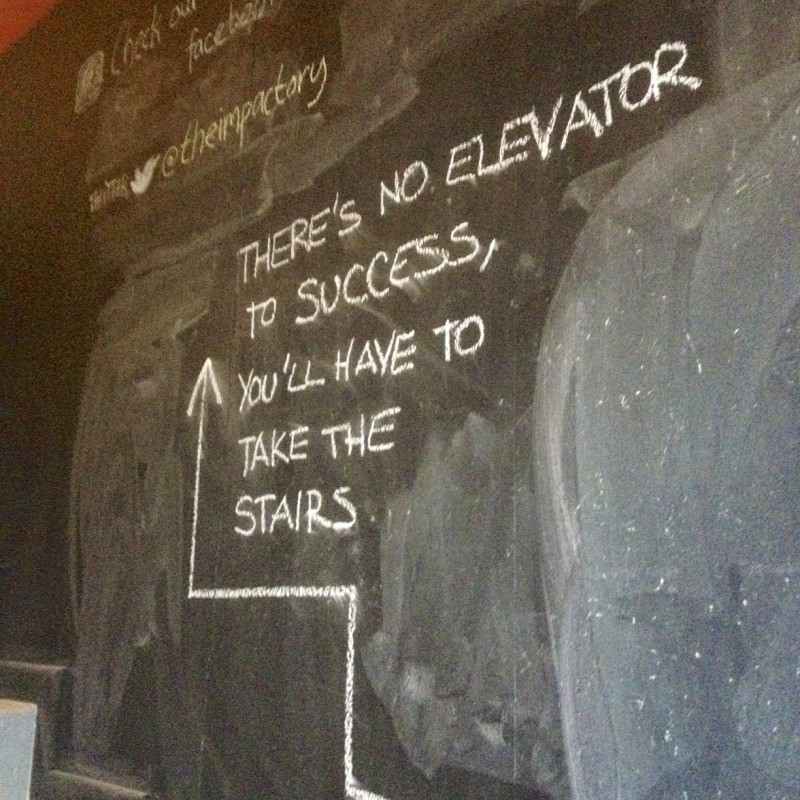 Check our
facebook
TWITTER @theimpactory
THERE'S NO ELEVATOR
TO SUCCESS,
YOU'LL HAVE TO
TAKE THE
STAIRS